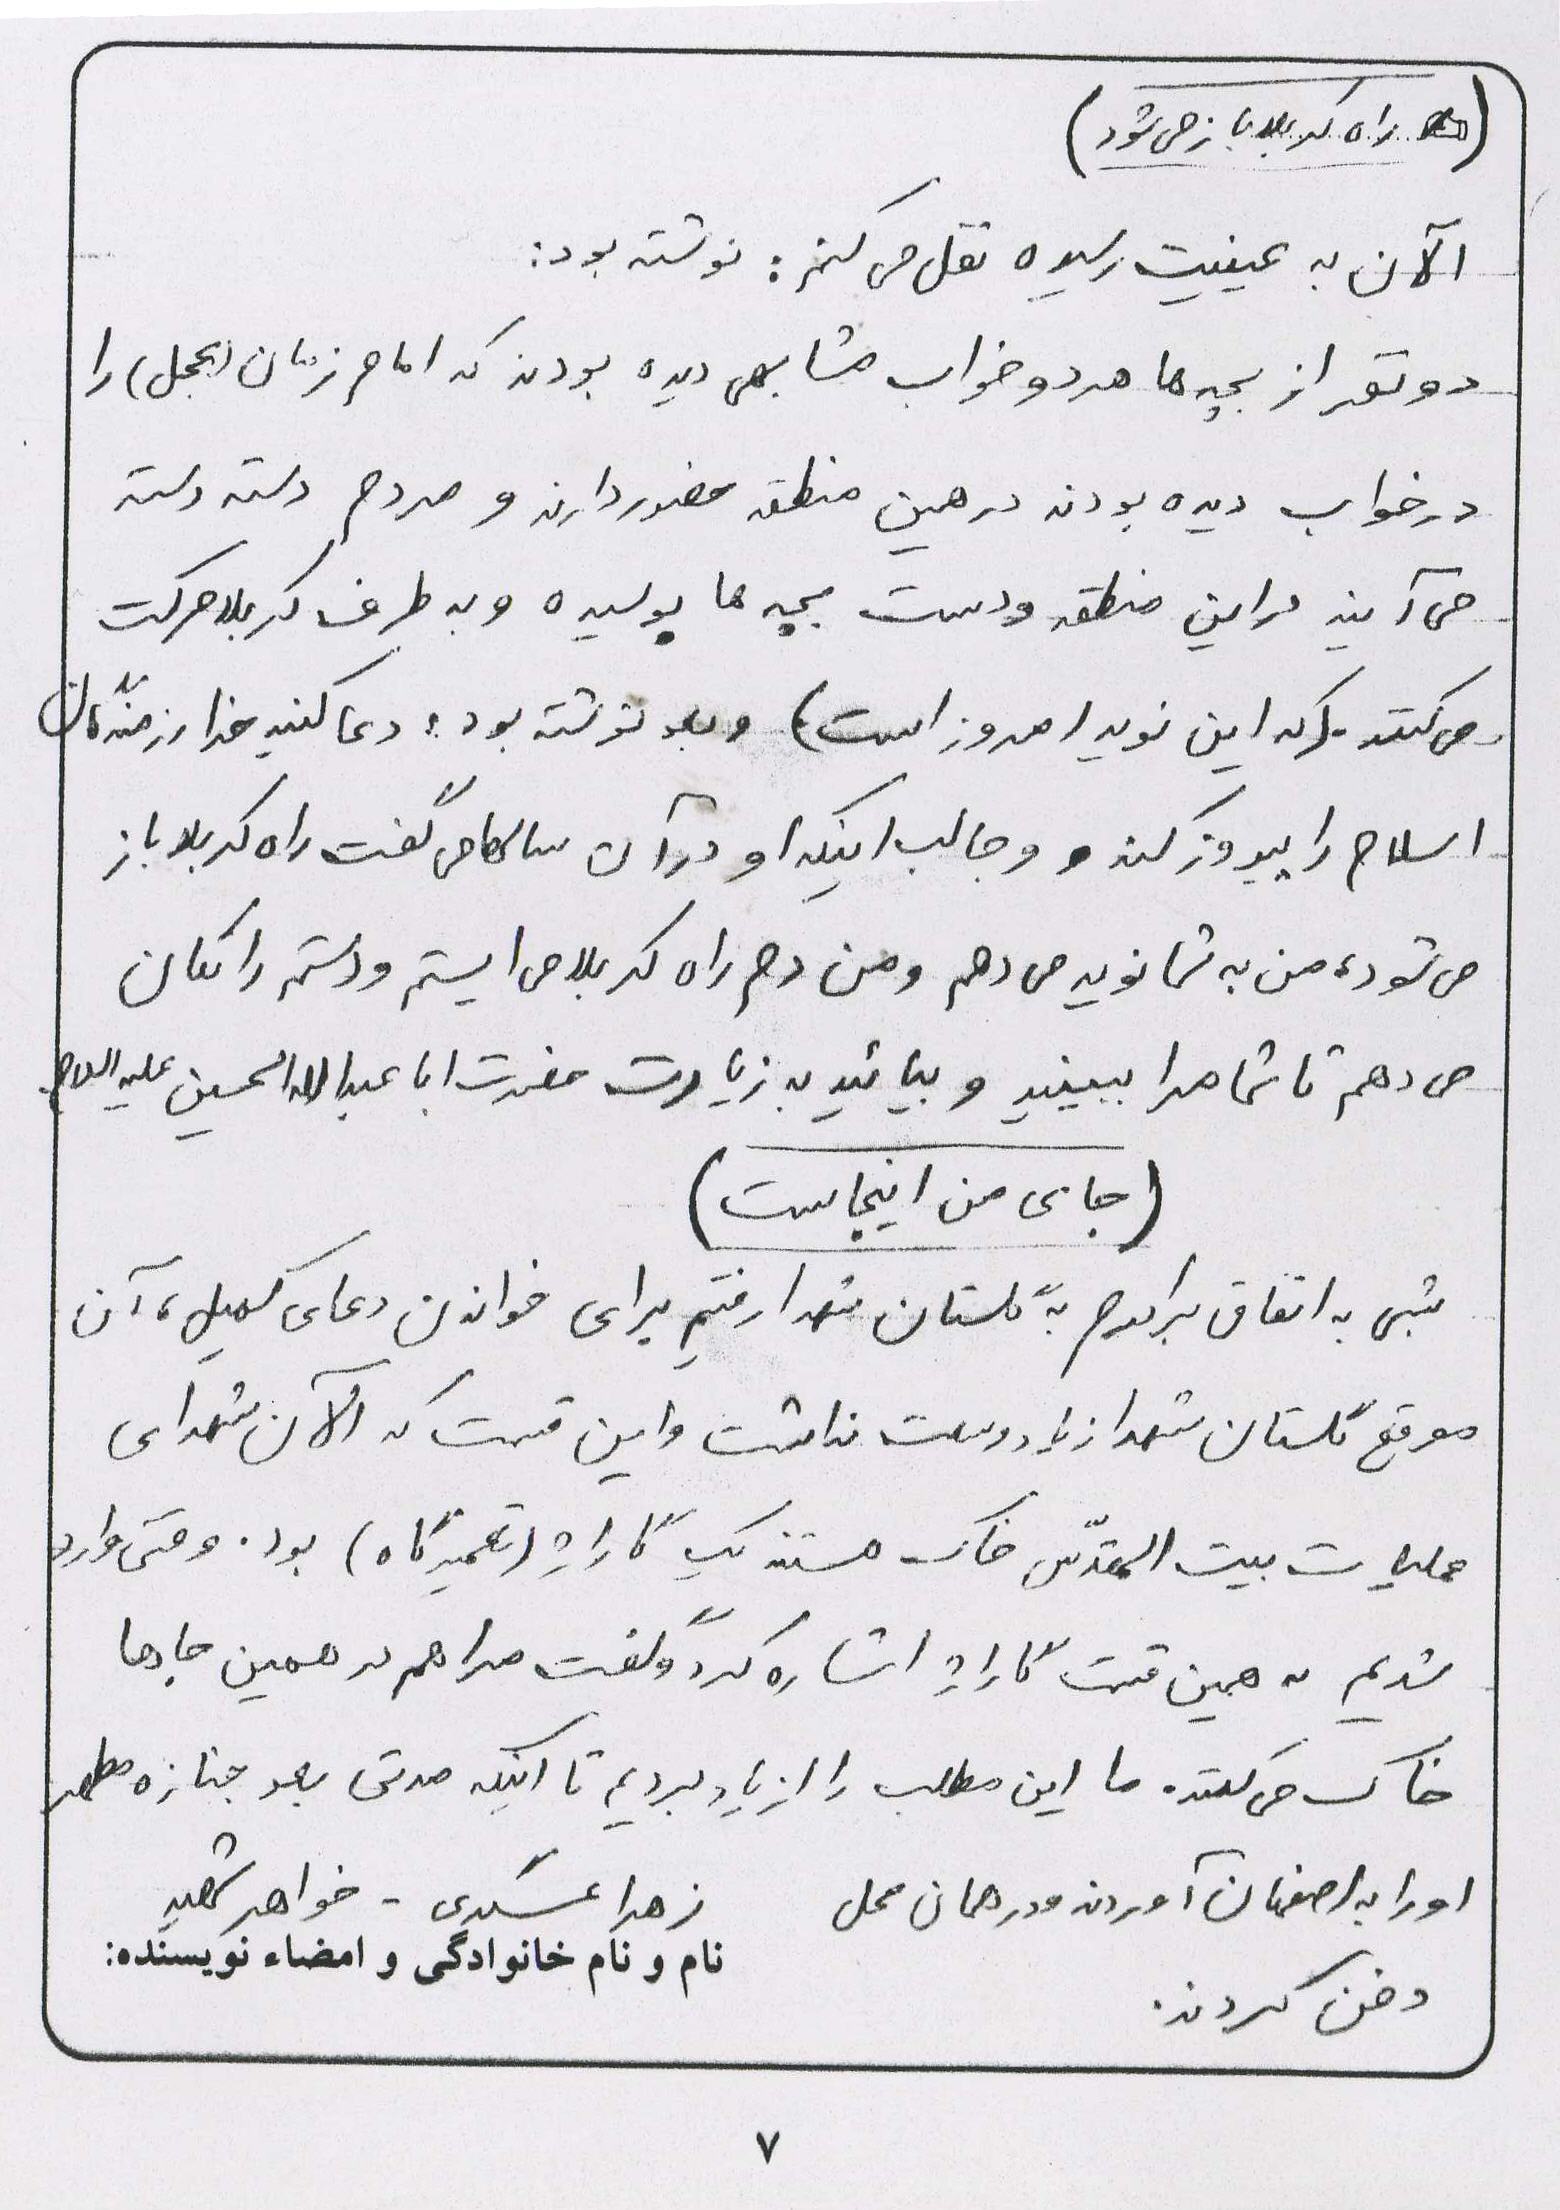 (راه کربلا باز می‌شود)
الآن به عینیت رسیده نقل می‌کنم: نوشته بود:
دو نفر از بچه‌ها هر دو خواب مشابهی دیده بودند که امام زمان (عجل) را
در خواب دیده بودند در همین منطقه حضور دارند و مردم دسته دسته
می‌آیند در این منطقه و دست بچه‌ها بوسیده و به طرف کربلا حرکت
می‌کنند. (که این نوید امروز است) و بعد نوشته بود: دعا کنید خدا رزمندگان
اسلام را پیروز کند و جالب اینکه او در آن سالها می‌گفت راه کربلا باز
می‌شود، من به شما نوید می‌دهم و من دم راه کربلا می‌ایستم و دستم را تکان
می‌دهم تا شما مرا ببینید و بیائید به زیارت حضرت ابا عبدالله الحسین علیه السلام.
(جای من اینجاست)
شبی به اتفاق برادرم به گلستان شهدا رفتیم برای خواندن دعای کمیل، آن
موقع گلستان شهدا زیاد وسعت نداشت و این قسمت که الآن شهدای
عملیات بیت المقدّس خاک هستند یک گاراژ (تعمیرگاه) بود. وقتی وارد
شدیم به همین قسمت گاراژ اشاره کرد و گفت مرا هم در همین جاها
خاک می‌کنند. ما این مطلب را از یاد بردیم تا اینکه مدتی بعد جنازه مطهر
او را به اصفهان آوردند و در همان محل
دفن کردند.
زهرا عسگری - خواهر شهید
نام و نام خانوادگی و امضاء نویسنده:
۷